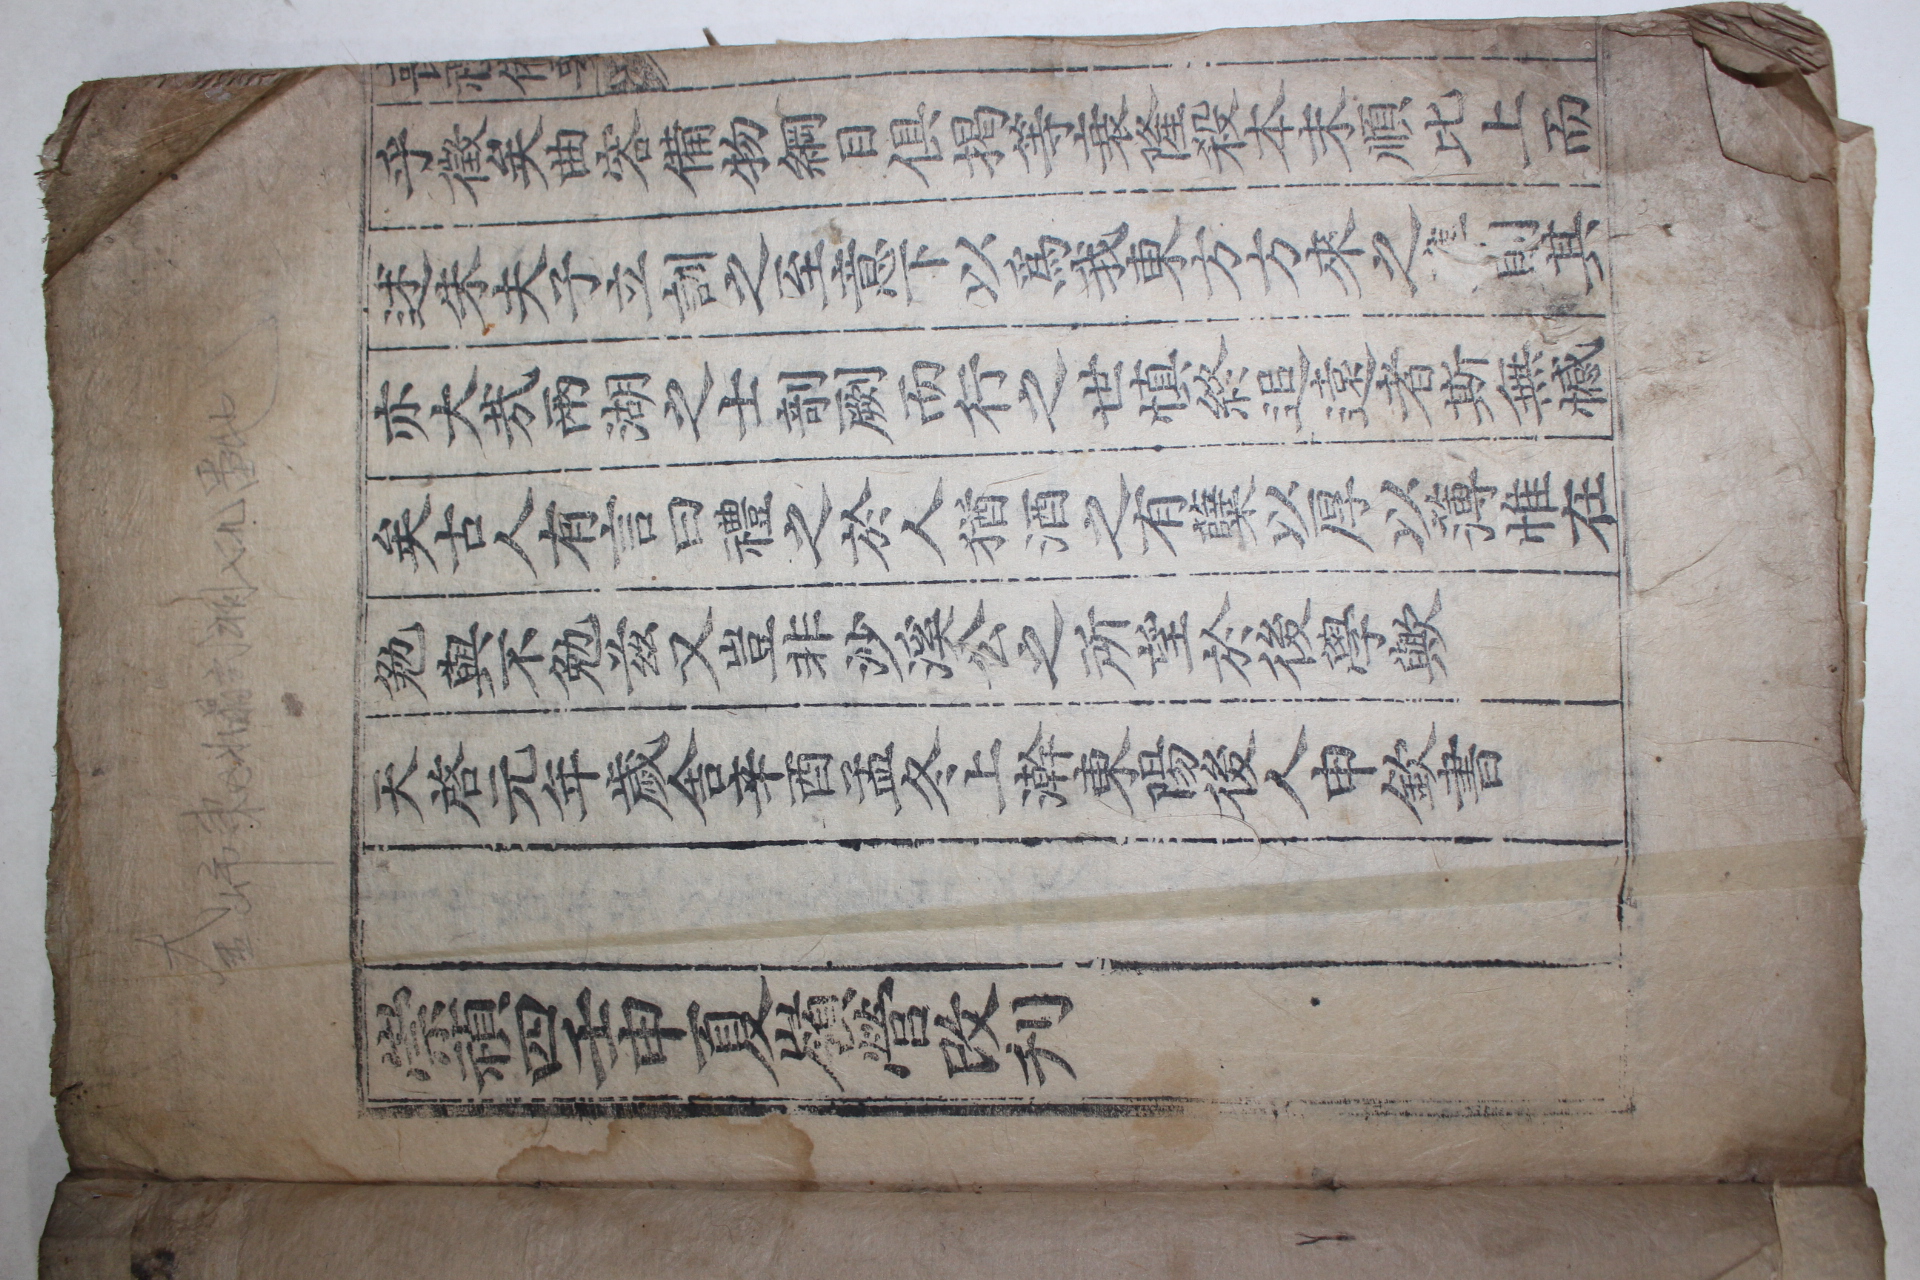 乎徵矣曲容備物綱目俱揭等衰隆殺本末順比上而
述朱夫子立訓之至意下以爲我東方方來之則其
亦大哉兩湖之士剞劂而行之世愼終追遠者斯無憾
矣古人有言曰禮之於人猶酒之有糱以厚以薄惟在
勉與不勉茲又豈非沙溪公之所望於後學歟
天啓元年歲舍辛酉孟冬上澣東陽後人申欽書
崇禎四壬申夏嶺營改刊